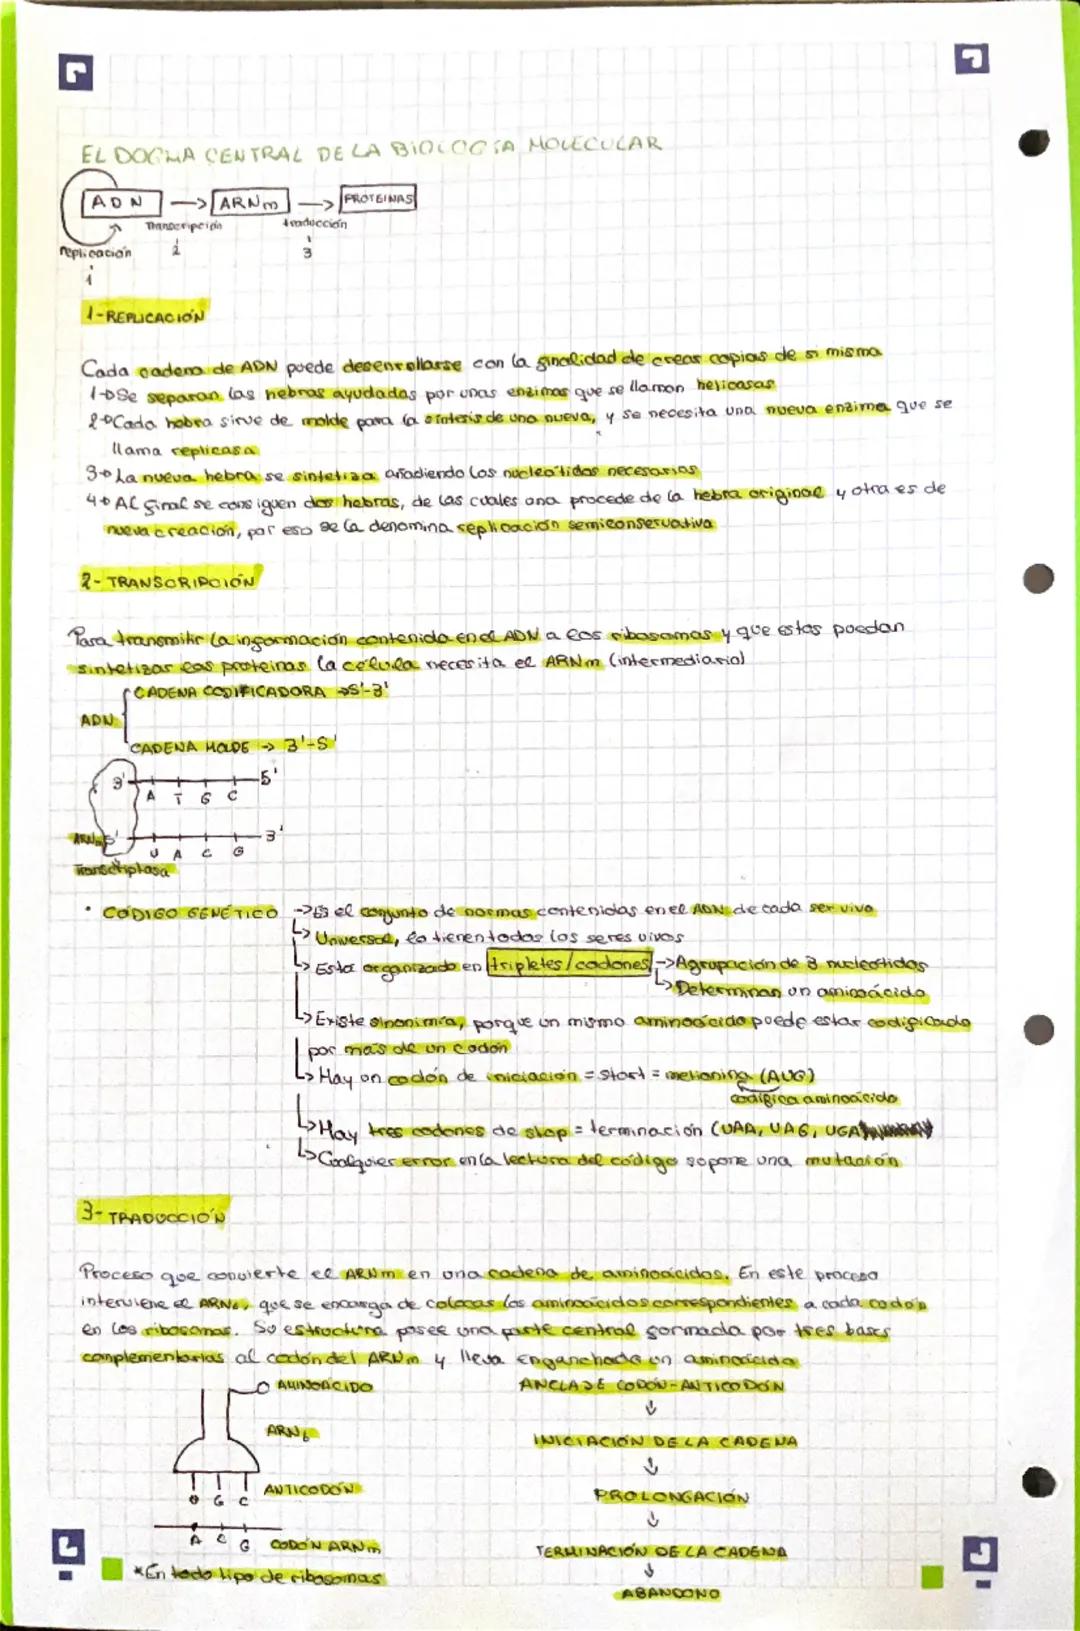 EL DOGMA CENTRAL DE LA BIOLOGÍA MOLECULAR
ADN -> ARNm -> PROTEINAS
Transcripción traducción
replicación 2 3
1
1-REPLICACIÓN
Cada cadena de ADN puede desenrollarse con la finalidad de crear copias de sí misma
1-> Se separan las hebras ayudadas por unas enzimas que se llaman helicasas
2-> Cada hebra sirve de molde para la síntesis de una nueva, y se necesita una nueva enzima que se
llama replicasa
3-> La nueva hebra se sintetiza añadiendo los nucleótidos necesarios
4-> Al final se consiguen dos hebras, de las cuales una procede de la hebra original y otra es de
nueva creación, por eso se la denomina replicación semiconservativa
2- TRANSCRIPCIÓN
Para transmitir la información contenida en el ADN a los ribosomas y que estos puedan
sintetizar las proteinas la célula necesita el ARNm (intermediario)
CADENA CODIFICADORA -> 5'-3'
ADN
CADENA MOLDE -> 3'-5'
3' 5'
A T G C
ARNm 5' 3'
U A C G
Transcriptasa
· CÓDIGO GENÉTICO -> Es el conjunto de normas contenidas en el ADN de cada ser vivo
-> Universal, lo tienen todos los seres vivos
-> Esta organizado en tripletes/codones -> Agrupación de 3 nucleotidos
-> Determinan un aminoácido
-> Existe sinonimia, porque un mismo aminoácido puede estar codificado
por más de un codón
-> Hay un codón de iniciación = Start = metionina (AUG)
codifica aminoácido
-> Hay tres codones de stop = terminación (UAA, UAG, UGA
-> Cualquier error en la lectura del código supone una mutación
3- TRADUCCIÓN
Proceso que convierte el ARNm en una cadena de aminoácidos. En este proceso
interviene el ARNt, que se encarga de colocar los aminoácidos correspondientes a cada codón
en los ribosomas. Su estructura posee una parte central formada por tres bases
complementarias al codón del ARNm y lleva enganchado un aminoácido
AMINOÁCIDO ANCLAJE CODÓN-ANTICODÓN
ARNt INICIACIÓN DE LA CADENA
ANTICODÓN PROLONGACIÓN
U G C
A C G CODÓN ARNm TERMINACIÓN DE LA CADENA
*En todo tipo de ribosomas
ABANDONO